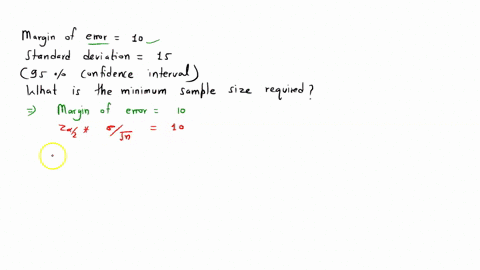 Margin of error = 10
Standard deviation = 15
(95 % confidence interval)
What is the minimum sample size required?
⇒ Margin of error = 10
Zα/2 * σ/√n = 10